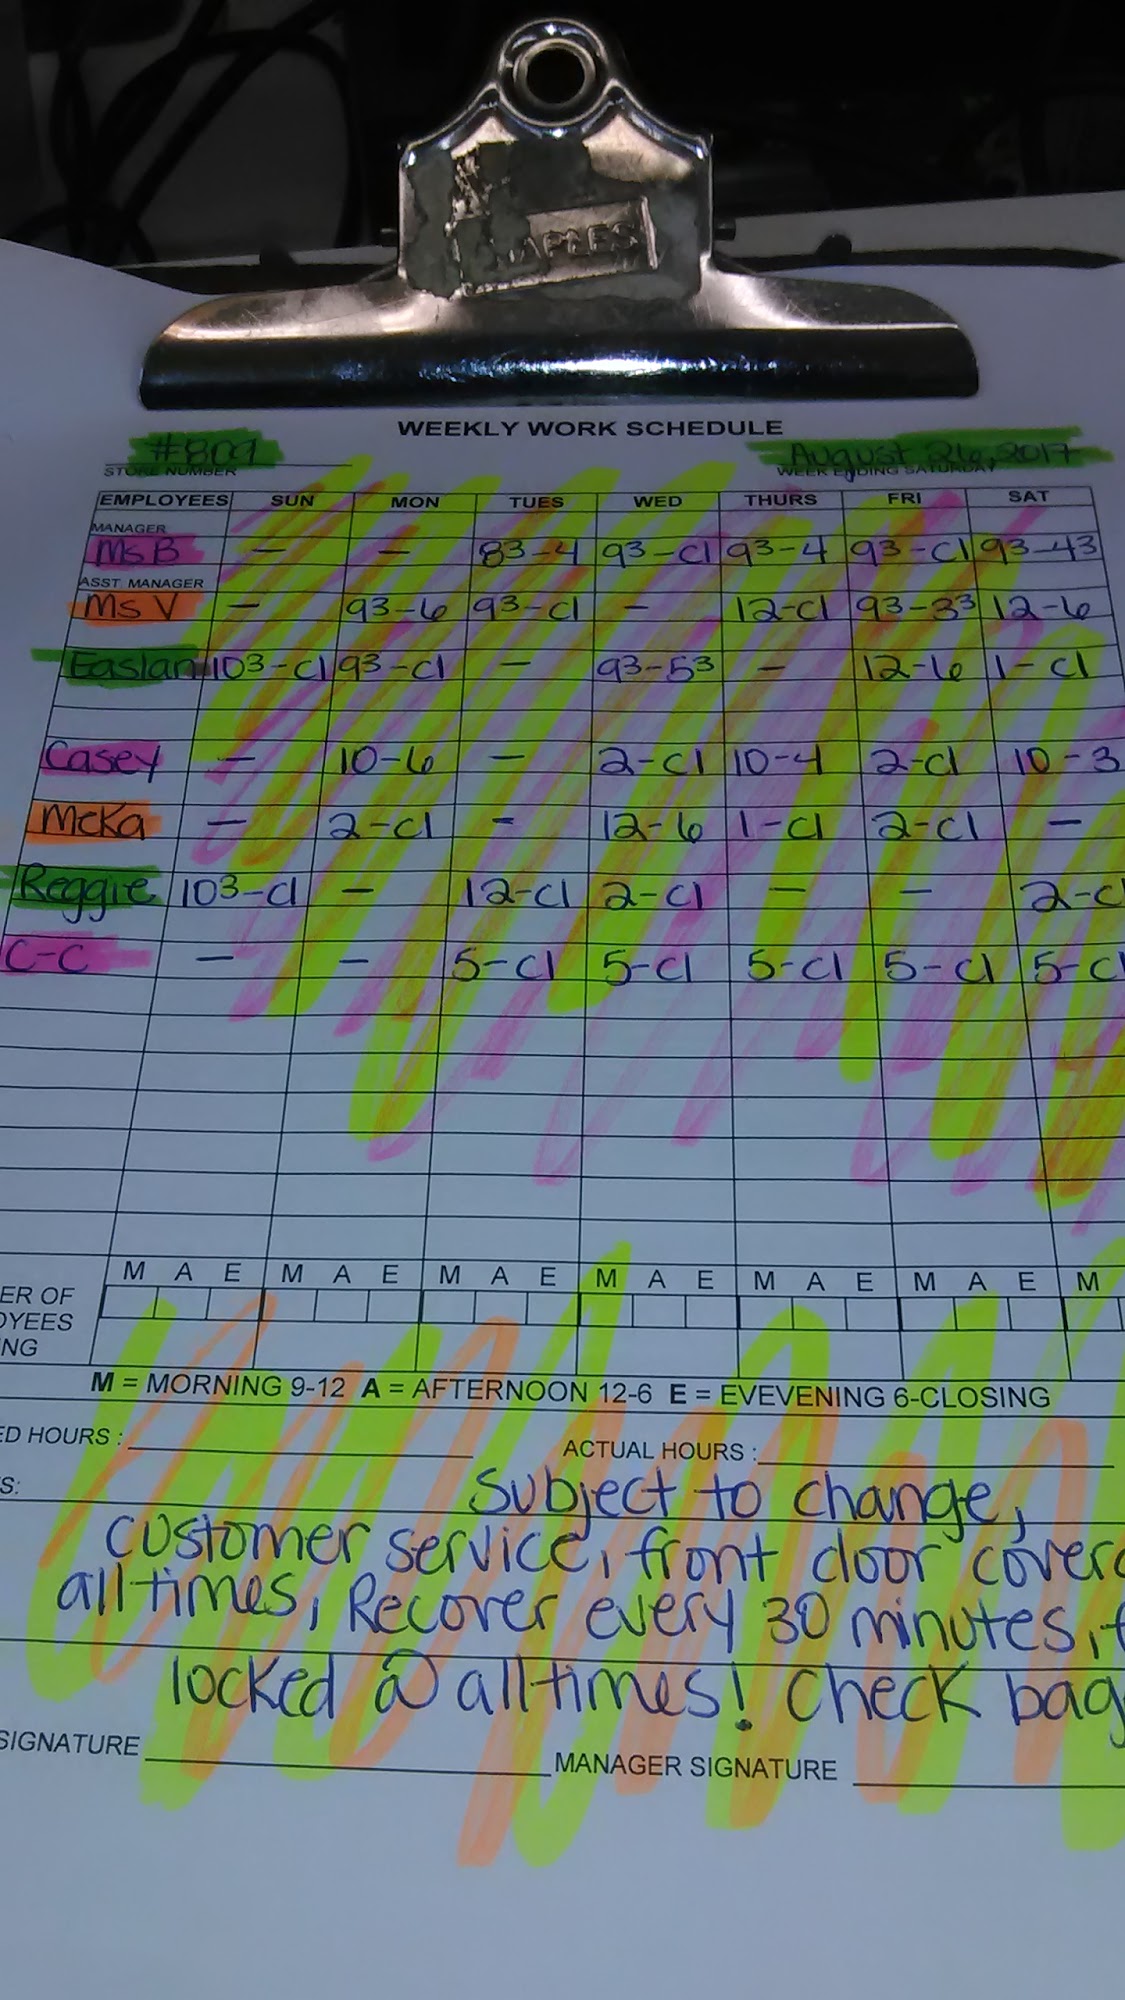 STAPLES
WEEKLY WORK SCHEDULE
#809 August 26, 2017
STORE NUMBER WEEK ENDING SATURDAY
EMPLOYEES SUN MON TUES WED THURS FRI SAT
MANAGER
Ms B - - 8³-4 9³-cl 9³-4 9³-cl 9³-4³
ASST. MANAGER
Ms V - 9³-6 9³-cl - 12-cl 9³-3³ 12-6
Easlan 10³-cl 9³-cl - 9³-5³ - 12-6 1-cl
Casey - 10-6 - 2-cl 10-4 2-cl 10-3
McKa - 2-cl - 12-6 1-cl 2-cl -
Reggie 10³-cl - 12-cl 2-cl - - 2-c
C-C - - 5-cl 5-cl 5-cl 5-cl 5-cl
M A E M A E M A E M A E M A E M A E M
ER OF
OYEES
NG
M = MORNING 9-12 A = AFTERNOON 12-6 E = EVEVENING 6-CLOSING
ED HOURS : ACTUAL HOURS :
S: Subject to change,
customer service, front door cover
all times, Recover every 30 minutes,
locked @ all times! Check bag
SIGNATURE MANAGER SIGNATURE